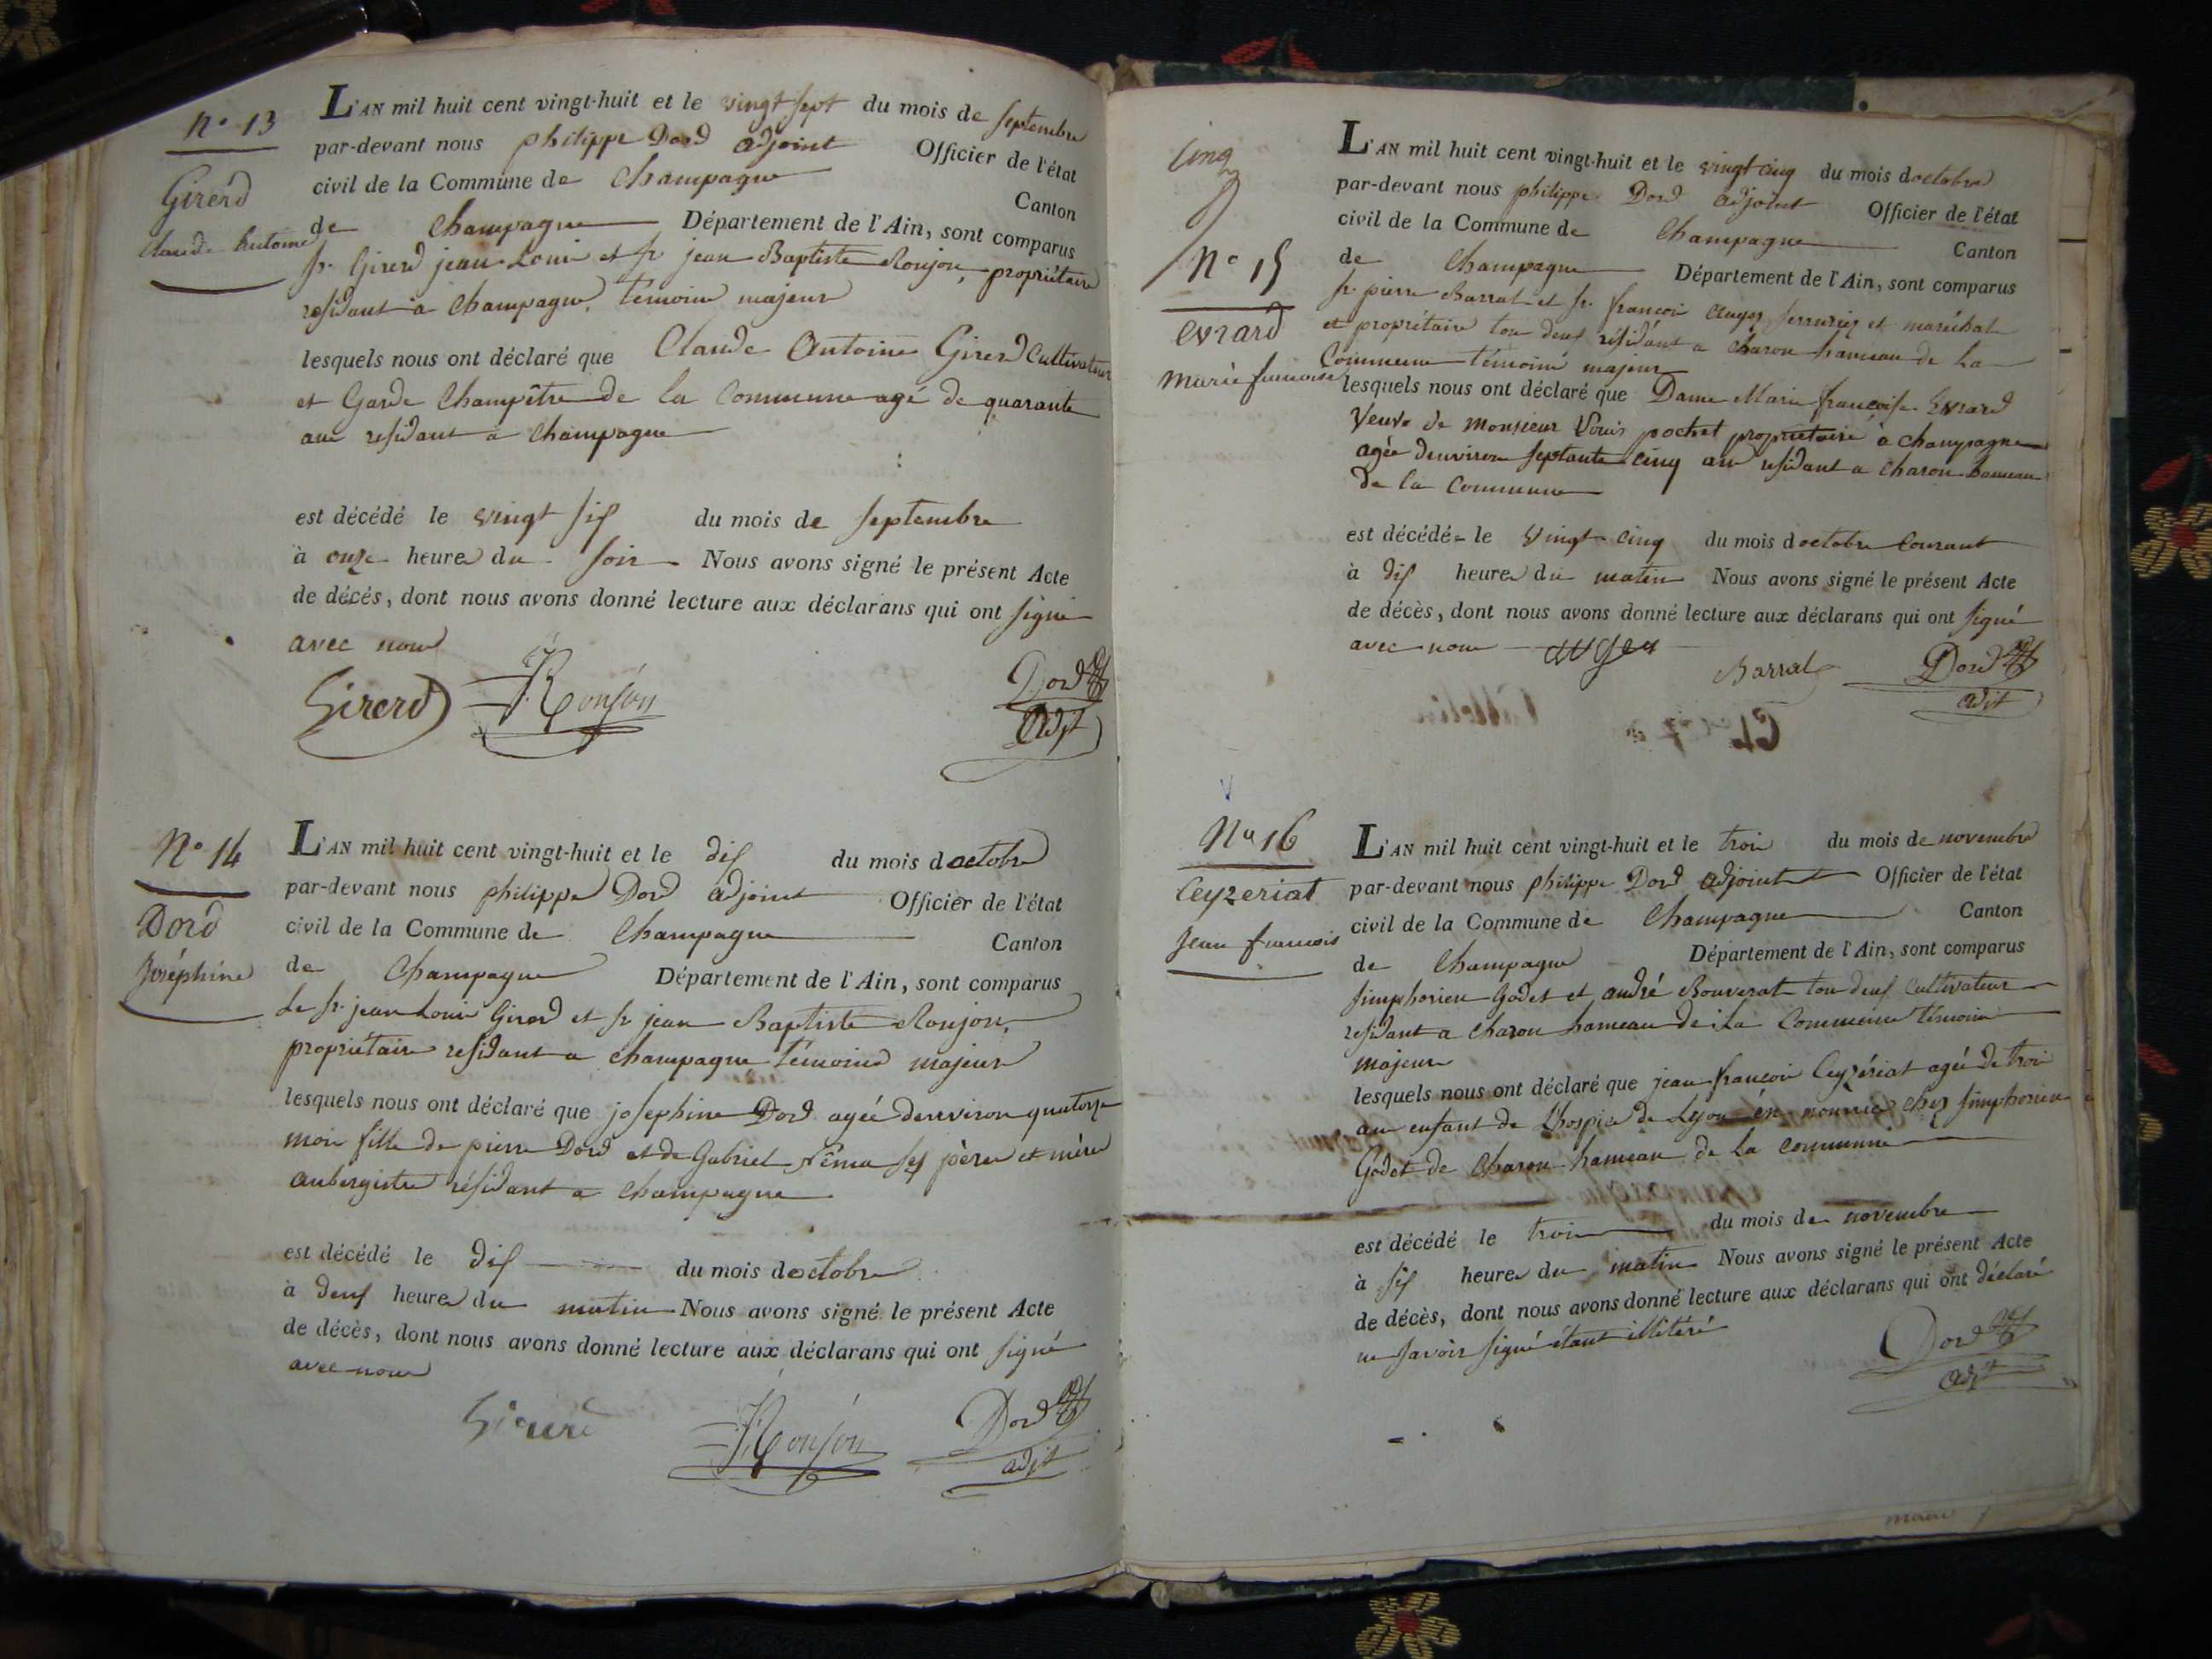 N° 13
Girerd
Claude Antoine
L'AN mil huit cent vingt-huit et le vingt sept du mois de septembre
par-devant nous philippe Dord adjoint Officier de l'état
civil de la Commune de Champagne Canton
de Champagne Département de l'Ain, sont comparus
sr. Girerd jean Louis et sr jean Baptiste Ronjon, propriétaire
résidant à Champagne, témoins majeurs
lesquels nous ont déclaré que Claude Antoine Girerd Cultivateur
et Garde Champêtre de la Commune agé de quarante
ans residant a Champagne
est décédé le vingt six du mois de septembre
à onze heures du soir Nous avons signé le présent Acte
de décés, dont nous avons donné lecture aux déclarans qui ont signé
avec nous
Girerd Ronjon Dord
adjt
N° 14
Dord
Joséphine
L'AN mil huit cent vingt-huit et le dix du mois d octobre
par-devant nous philippe Dord adjoint Officier de l'état
civil de la Commune de Champagne Canton
de Champagne Département de l'Ain, sont comparus
Le sr. jean Louis Girerd et sr jean Baptiste Ronjon,
propriétaire residant a Champagne témoins majeurs
lesquels nous ont déclaré que josephine Dord agée denviron quatorze
mois fille de pierre Dord et de Gabriel ses père et mère
aubergistes résidant a Champagne
est décédé le dix du mois doctobre
à deux heures du matin Nous avons signé le présent Acte
de décès, dont nous avons donné lecture aux déclarans qui ont signé
avec nous
Girerd Ronjon Dord
adjt
Cinq
N° 15
Evrard
Marie francoise
L'AN mil huit cent vingt-huit et le vingt cinq du mois doctobre
par-devant nous philippe Dord adjoint Officier de l'état
civil de la Commune de Champagne Canton
de Champagne Département de l'Ain, sont comparus
sr. pierre Barral et sr. francois Auger serrurier et maréchal
et propriétaire tous deux résidant a Charon hameau de La
Commune témoins majeurs
lesquels nous ont déclaré que Dame Marie françoise Evrard
Veuve de Monsieur Louis pochet propriétaire à Champagne
agée denviron septante cinq ans residant a Charon hameau
de la Commune
est décédé-e le vingt cinq du mois doctobre courant
à dix heures du matin Nous avons signé le présent Acte
de décès, dont nous avons donné lecture aux déclarans qui ont signé
avec nous auger Barral Dord
adjt
No 16
Ceyzeriat
Jean francois
L'AN mil huit cent vingt-huit et le trois du mois de novembre
par-devant nous philippe Dord adjoint Officier de l'état
civil de la Commune de Champagne Canton
de Champagne Département de l'Ain, sont comparus
simphorien Godet et andré Bouverat tou deux cultivateur
residant a Charon hameau de La Commune témoins
majeurs
lesquels nous ont déclaré que jean francois Ceyzériat agée de trois
ans enfant de Lhospice de Lyon en nourrice chez simphorien
Godet de Charon hameau de La commune
est décédé le trois du mois de novembre
à six heures du matin Nous avons signé le présent Acte
de décès, dont nous avons donné lecture aux déclarans qui ont déclaré
ne savoir signé étant illitéré
Dord
adjt